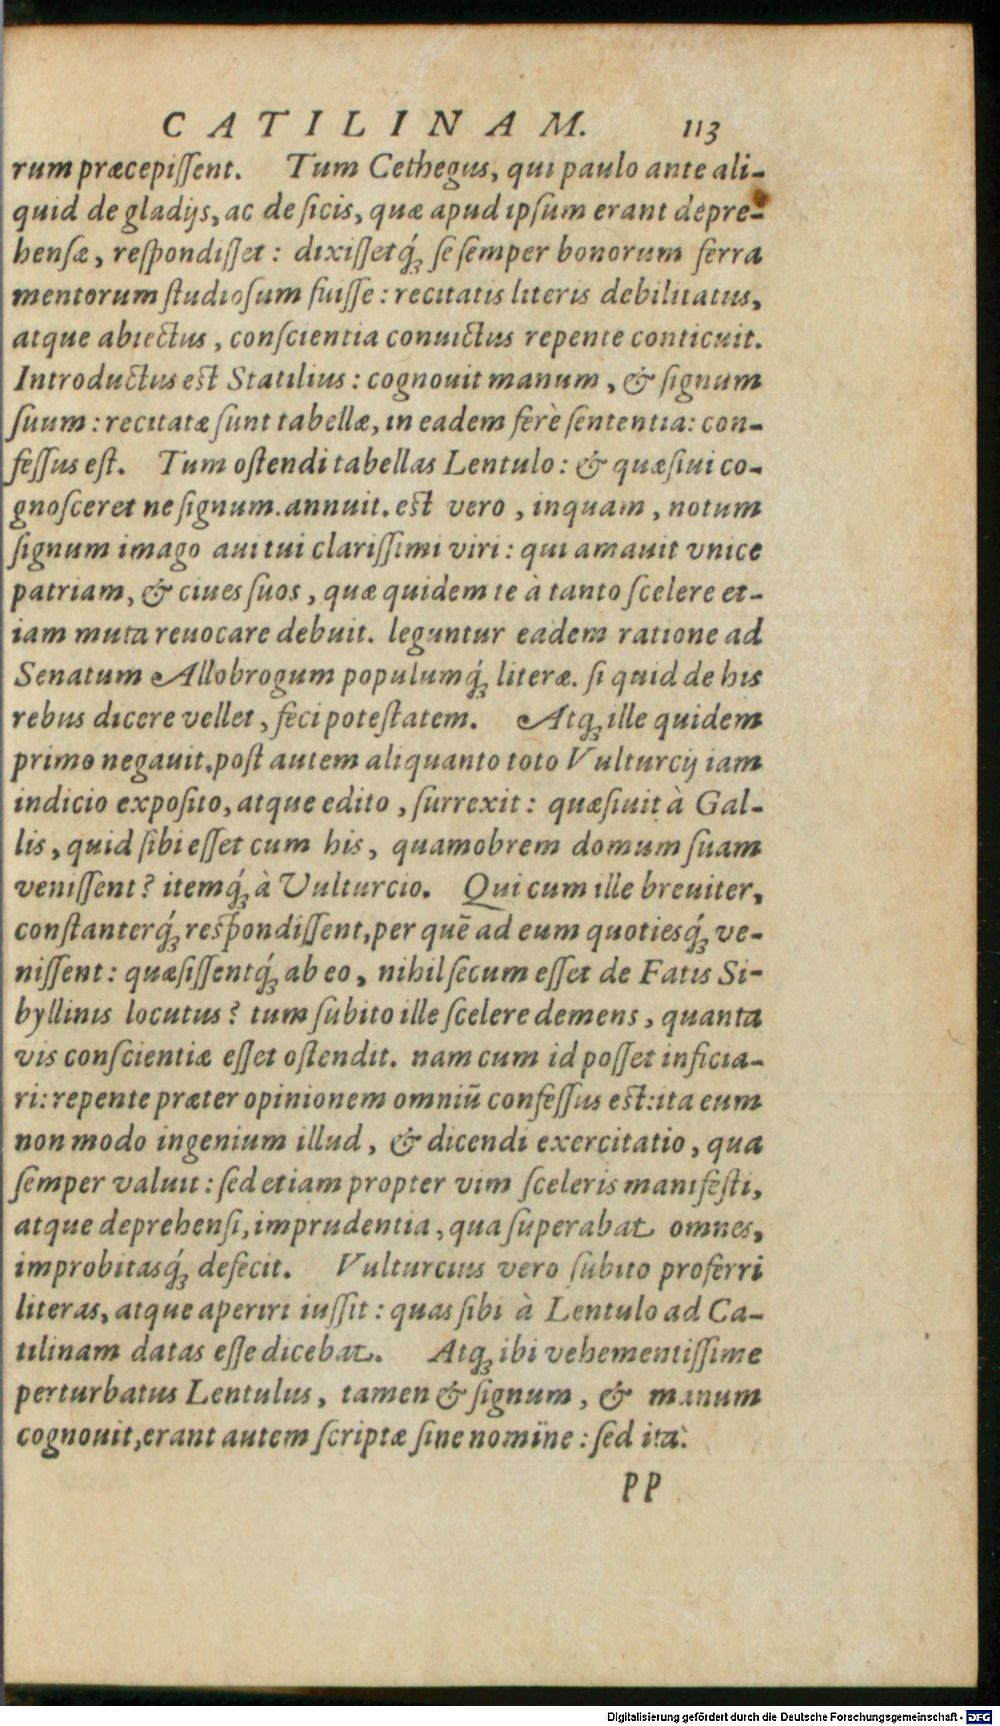 CATILINAM. 113
rum præcepiſſent. Tum Cethegus, qui paulo ante ali-
quid de gladijs, ac de ſicis, quæ apud ipſum erant depre-
henſæ, reſpondiſſet: dixiſſetq́ꝫ ſe ſemper bonorum ferra
mentorum ſtudioſum fuiſſe: recitatis literis debilitatus,
atque abiectus, conſcientia conuictus repente conticuit.
Introductus est Statilius: cognouit manum, & ſignum
ſuum: recitatæ ſunt tabellæ, in eadem ferè ſententia: con-
feſſus eſt. Tum oſtendi tabellas Lentulo: & quæſiui co-
gnoſceret ne ſignum. annuit. est vero, inquam, notum
ſignum imago aui tui clariſſimi viri: qui amauit vnice
patriam, & ciues ſuos, quæ quidem te à tanto ſcelere et-
iam muta reuocare debuit. leguntur eadem ratione ad
Senatum Allobrogum populumq́ꝫ literæ. ſi quid de his
rebus dicere vellet, feci poteſtatem. Atqꝫ ille quidem
primo negauit. poſt autem aliquanto toto Vulturcij iam
indicio expoſito, atque edito, ſurrexit: quæſiuit à Gal-
lis, quid ſibi eſſet cum his, quamobrem domum ſuam
veniſſent? itemq́ꝫ à Vulturcio. Qui cum ille breuiter,
conſtanterq́ꝫ reſpondiſſent, per quē ad eum quotiesq́ꝫ ve-
niſſent: quæſiſſentq́ꝫ ab eo, nihil ſecum eſſet de Fatis Si-
byllinis locutus? tum ſubito ille ſcelere demens, quanta
vis conſcientiæ eſſet oſtendit. nam cum id poſſet inficia-
ri: repente præter opinionem omniū confeſſus est: ita eum
non modo ingenium illud, & dicendi exercitatio, qua
ſemper valuit: ſed etiam propter vim ſceleris manifeſti,
atque deprehenſi, imprudentia, qua ſuperabat omnes,
improbitasq́ꝫ defecit. Vulturcius vero ſubito proferri
literas, atque aperiri iuſſit: quas ſibi à Lentulo ad Ca-
tilinam datas eſſe dicebat. Atqꝫ ibi vehementiſſime
perturbatus Lentulus, tamen & ſignum, & manum
cognouit, erant autem ſcriptæ ſine nomine: ſed ita.
PP
Digitalisierung gefördert durch die Deutsche Forschungsgemeinschaft - DFG